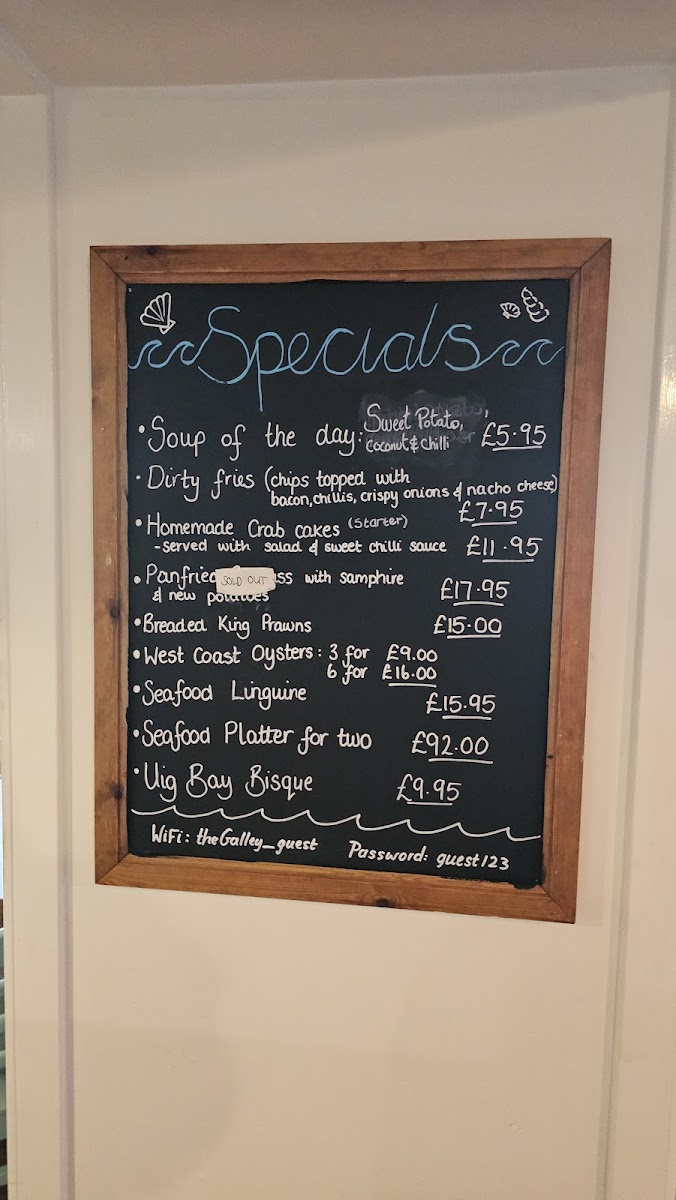 Specials
• Soup of the day: Sweet Potato,
Coconut & Chilli £5.95
• Dirty fries (chips topped with
bacon, chillis, crispy onions & nacho cheese)
£7.95
• Homemade Crab cakes (Starter)
- served with salad & sweet chilli sauce £11.95
• Panfried SOLD OUT with samphire
& new potatoes £17.95
• Breaded King Prawns £15.00
• West Coast Oysters: 3 for £9.00
6 for £16.00
• Seafood Linguine £15.95
• Seafood Platter for two £92.00
• Uig Bay Bisque £9.95
WiFi: theGalley_guest Password: guest123